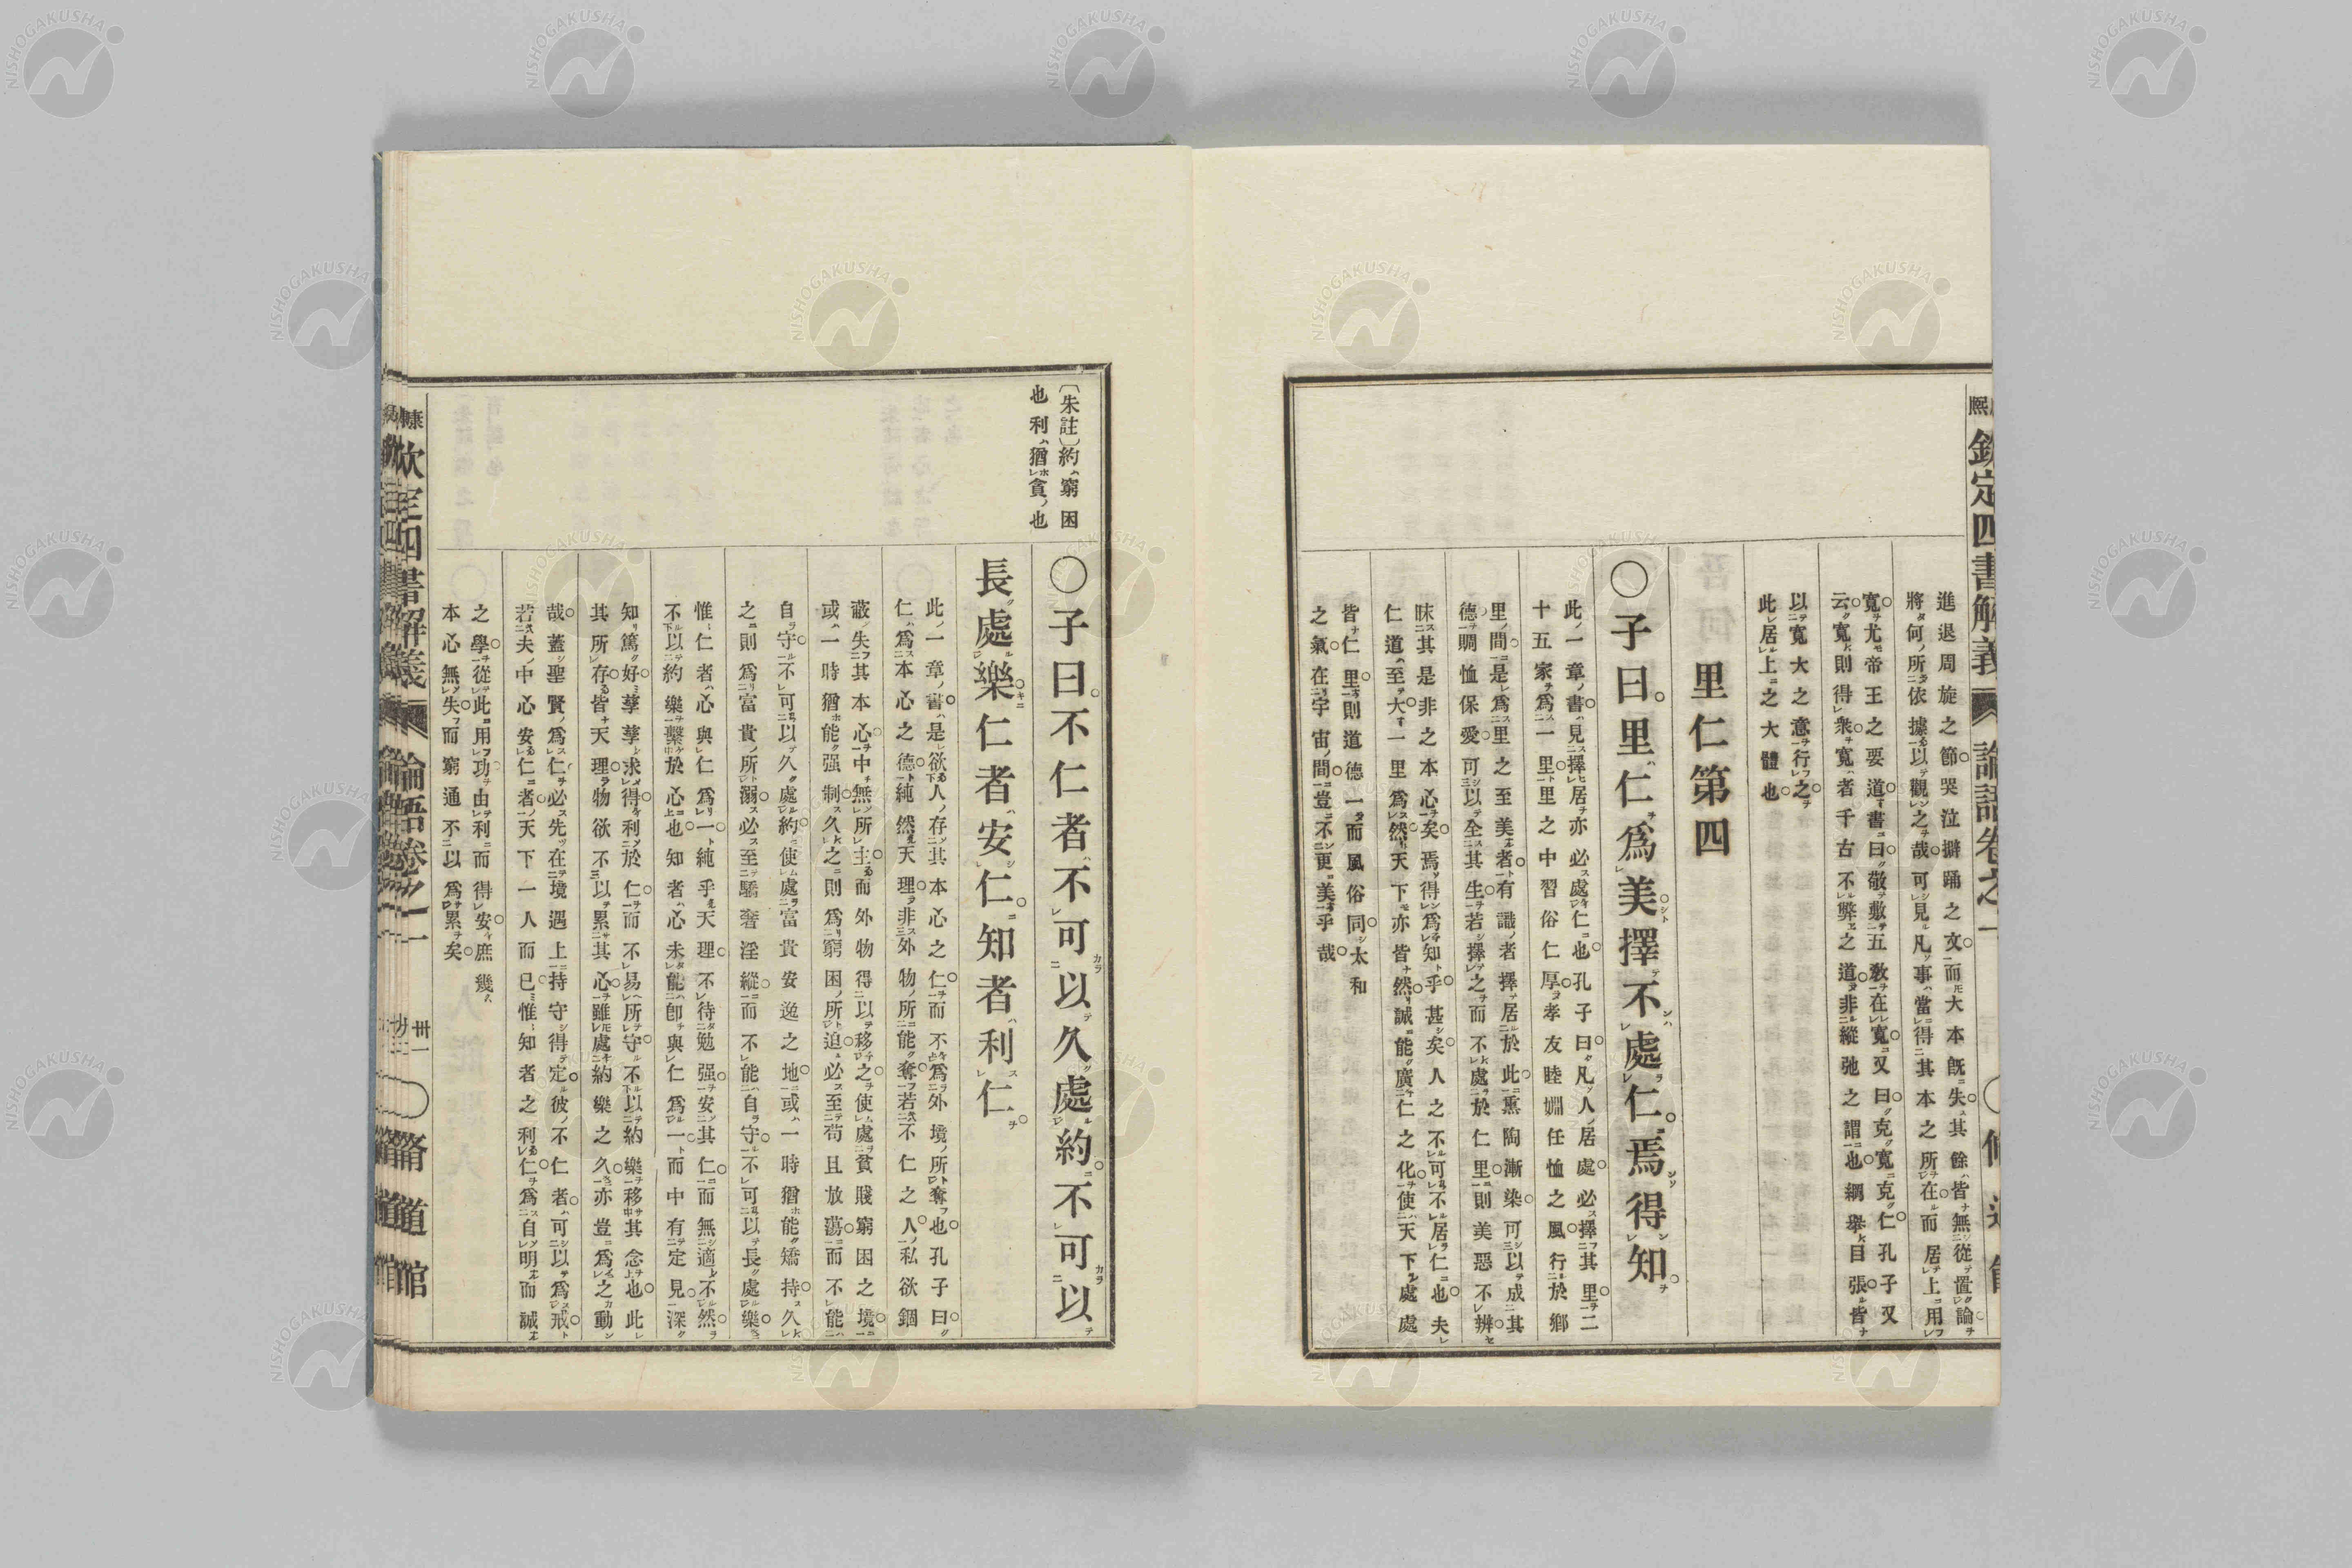 欽定四書解義
論語卷之一
進退周旋之節哭泣擗踊之文而大本既失其餘皆無從置論
將何所依據以觀之哉可見凡事當得其本之所在而居上用
寬尤帝王之要道書曰敬敷五敎在寬又曰克寬克仁孔子又
云寬則得衆寬者千古不弊之道非縱弛之謂也綱擧目張皆
以寬大之意行之
此居上之大體也
里仁第四
〇子曰里仁爲美擇不處仁焉得知
此一章書見擇居亦必處仁也孔子曰凡人居處必擇其里二
十五家爲一里里之中習俗仁厚孝友睦婣任恤之風行於鄕
里間是爲里之至美者有識者擇居於此熏陶漸染可以成其
德賙恤保愛可以全其生若擇之而不處於仁里則美惡不辨
昧其是非之本心矣焉得爲知乎甚矣人之不可不居仁也夫
仁道至大一里爲然天下亦皆然誠能廣仁之化使天下處處
皆仁里則道德一而風俗同太和
之氣在宇宙間豈不更美乎哉
〔朱註〕約窮困
也利猶貪也
〇子曰不仁者不可以久處約不可以
長處樂仁者安仁知者利仁
此一章書是欲人存其本心之仁而不爲外境所奪也孔子曰
仁爲本心之德純然天理非外物所能奪若不仁之人私欲錮
蔽失其本心中無所主而外物得以移之使處貧賤窮困之境
或一時猶能强制久之則爲窮困所迫必至苟且放蕩而不能
自守不可以久處約使處富貴安逸之地或一時猶能矯持久
之則爲富貴所溺必至驕奢淫縱而不能自守不可以長處樂
惟仁者心與仁爲一純乎天理不待勉强安其仁而無適不然
不以約樂繫於心也知者心未能卽與仁爲一而中有定見深
知篤好孳孳求得利於仁而不易所守不以約樂移其念也此
其所存皆天理物欲不以累其心雖處約樂之久亦豈爲之動
哉蓋聖賢爲仁必先在境遇上持守得定彼不仁者可以爲戒
若夫中心安仁者天下一人而已惟知者之利仁爲自明而誠
之學從此用功由利而得安庶幾
本心無失而窮通不以爲累矣
欽定四書解義
論語卷之一
卅一
〇脩道館